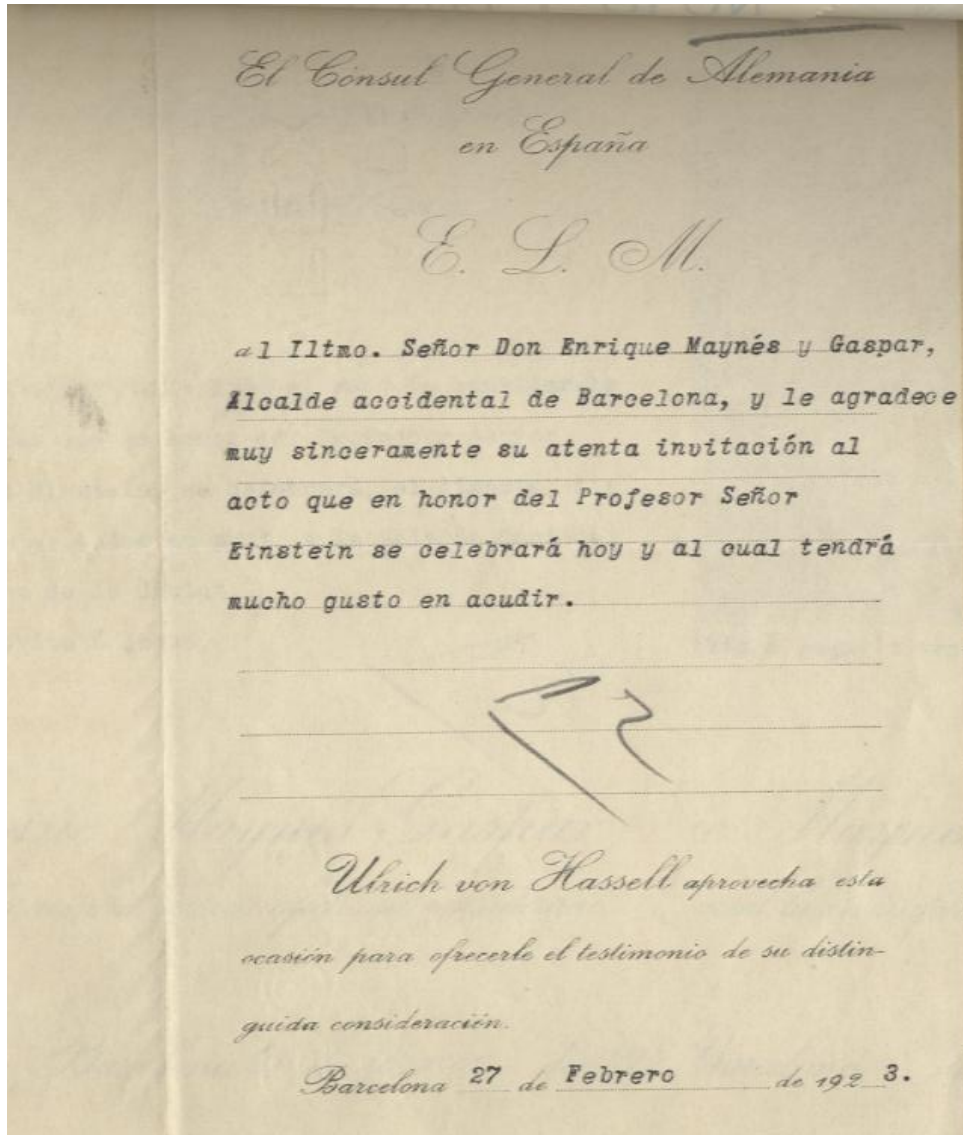 El Cónsul General de Alemania
en España
E. L. M.
al Iltmo. Señor Don Enrique Maynés y Gaspar,
Alcalde accidental de Barcelona, y le agradece
muy sinceramente su atenta invitación al
acto que en honor del Profesor Señor
Einstein se celebrará hoy y al cual tendrá
mucho gusto en acudir.
Ulrich von Hassell aprovecha esta
ocasión para ofrecerle el testimonio de su distin-
guida consideración.
Barcelona 27 de Febrero de 1923.